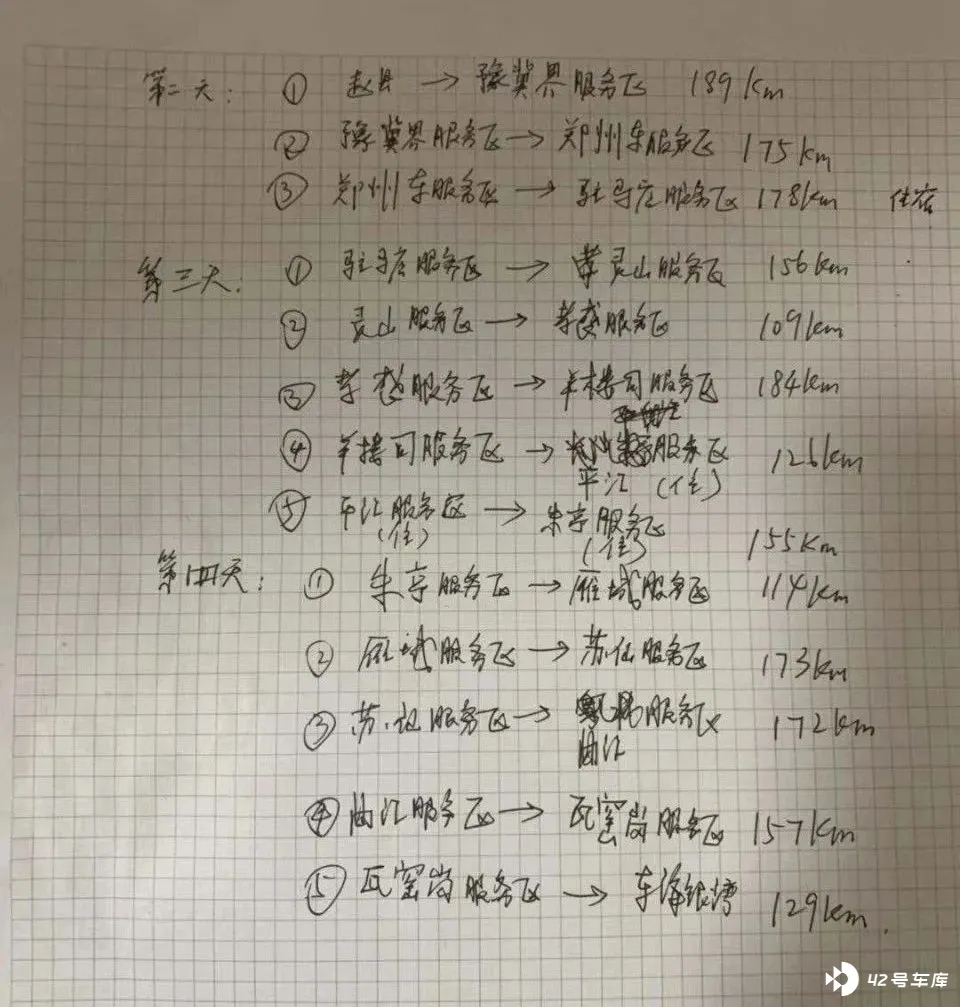 第二天: ① 赵县 → 豫冀界服务区 189km
② 豫冀界服务区 → 郑州东服务区 175km
③ 郑州东服务区 → 驻马店服务区 178km 住宿
第三天: ① 驻马店服务区 → 灵山服务区 156km
② 灵山服务区 → 孝感服务区 109km
③ 孝感服务区 → 羊楼司服务区 184km
④ 羊楼司服务区 → 服务区 126km
平江 (住)
⑤ 平江服务区 → 朱亭服务区 155km
(住) (住)
第四天: ① 朱亭服务区 → 雁城服务区 114km
② 雁城服务区 → 苏仙服务区 173km
③ 苏仙服务区 → 服务区 172km
曲江
④ 曲江服务区 → 瓦窑岗服务区 157km
⑤ 瓦窑岗服务区 → 东海银湾 129km.
42号车库